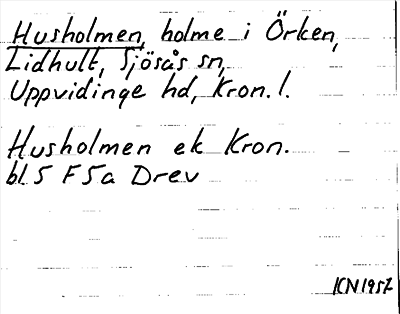 Husholmen, holme i Örken,
Lidhult, Sjösås sn,
Uppvidinge hd, Kron. l.
Husholmen ek Kron.
bl 5 F 5a Drev
ICN 1957